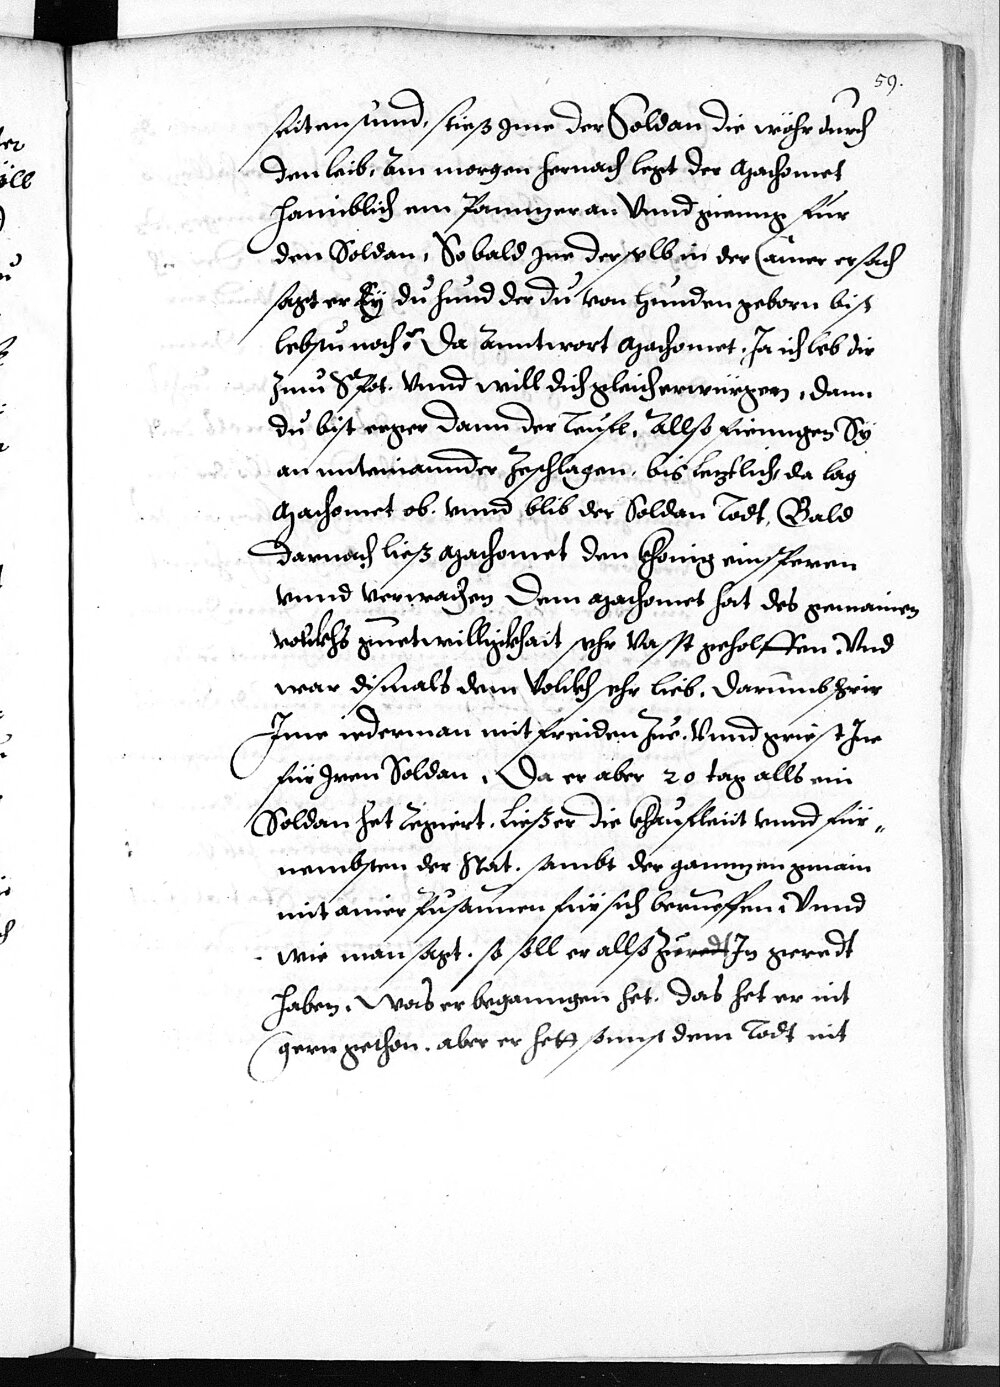 59.
seiten stund, stieß Ime der Soldan die wöhr durch
den leib, Am morgen hernach legt der Machomet
haimblich ein Pannzer an Vnnd gienng für
den Soldan, So bald Ine derselb in der Camer ersach
sagt er Ey du hund der du von hunden geborn bist
lebstu noch? Da Anntwort Machomet. Ja ich leb dir
Zuu Spot. Vnnd will dich gleich erwürgen, dann
du bist erger dann der Teufl, Allso fienngen Sy
an miteinannder Zeschlagen, bis letztlich, da lag
Machomet ob. vnnd blib der Soldan Todt, Bald
darnach ließ Machomet den Khönig einsperen
vnnd verwachen Dem Machomet hat des gemainen
volckhs guetwilligkhait sehr vasst geholffen. Vnd
war dismals dem Volckh sehr lieb. Darumb schrir
Jme iederman mit freiden Zue. Vnnd griest Ine
für Iren Soldan, Da er aber 20 tag alls ein
Soldan het Regiert. ließ er die Khaufleüt vnnd für„
nembsten der Stat. sambt der ganntzen gmain
mit ainer Pusaunen für sich berueffen, Vnnd
wie man sagt. so soll er allso Zu In geredt
haben. Was er beganngen het. das het er nit
gern gethon. aber er hett sonnst dem Todt nit